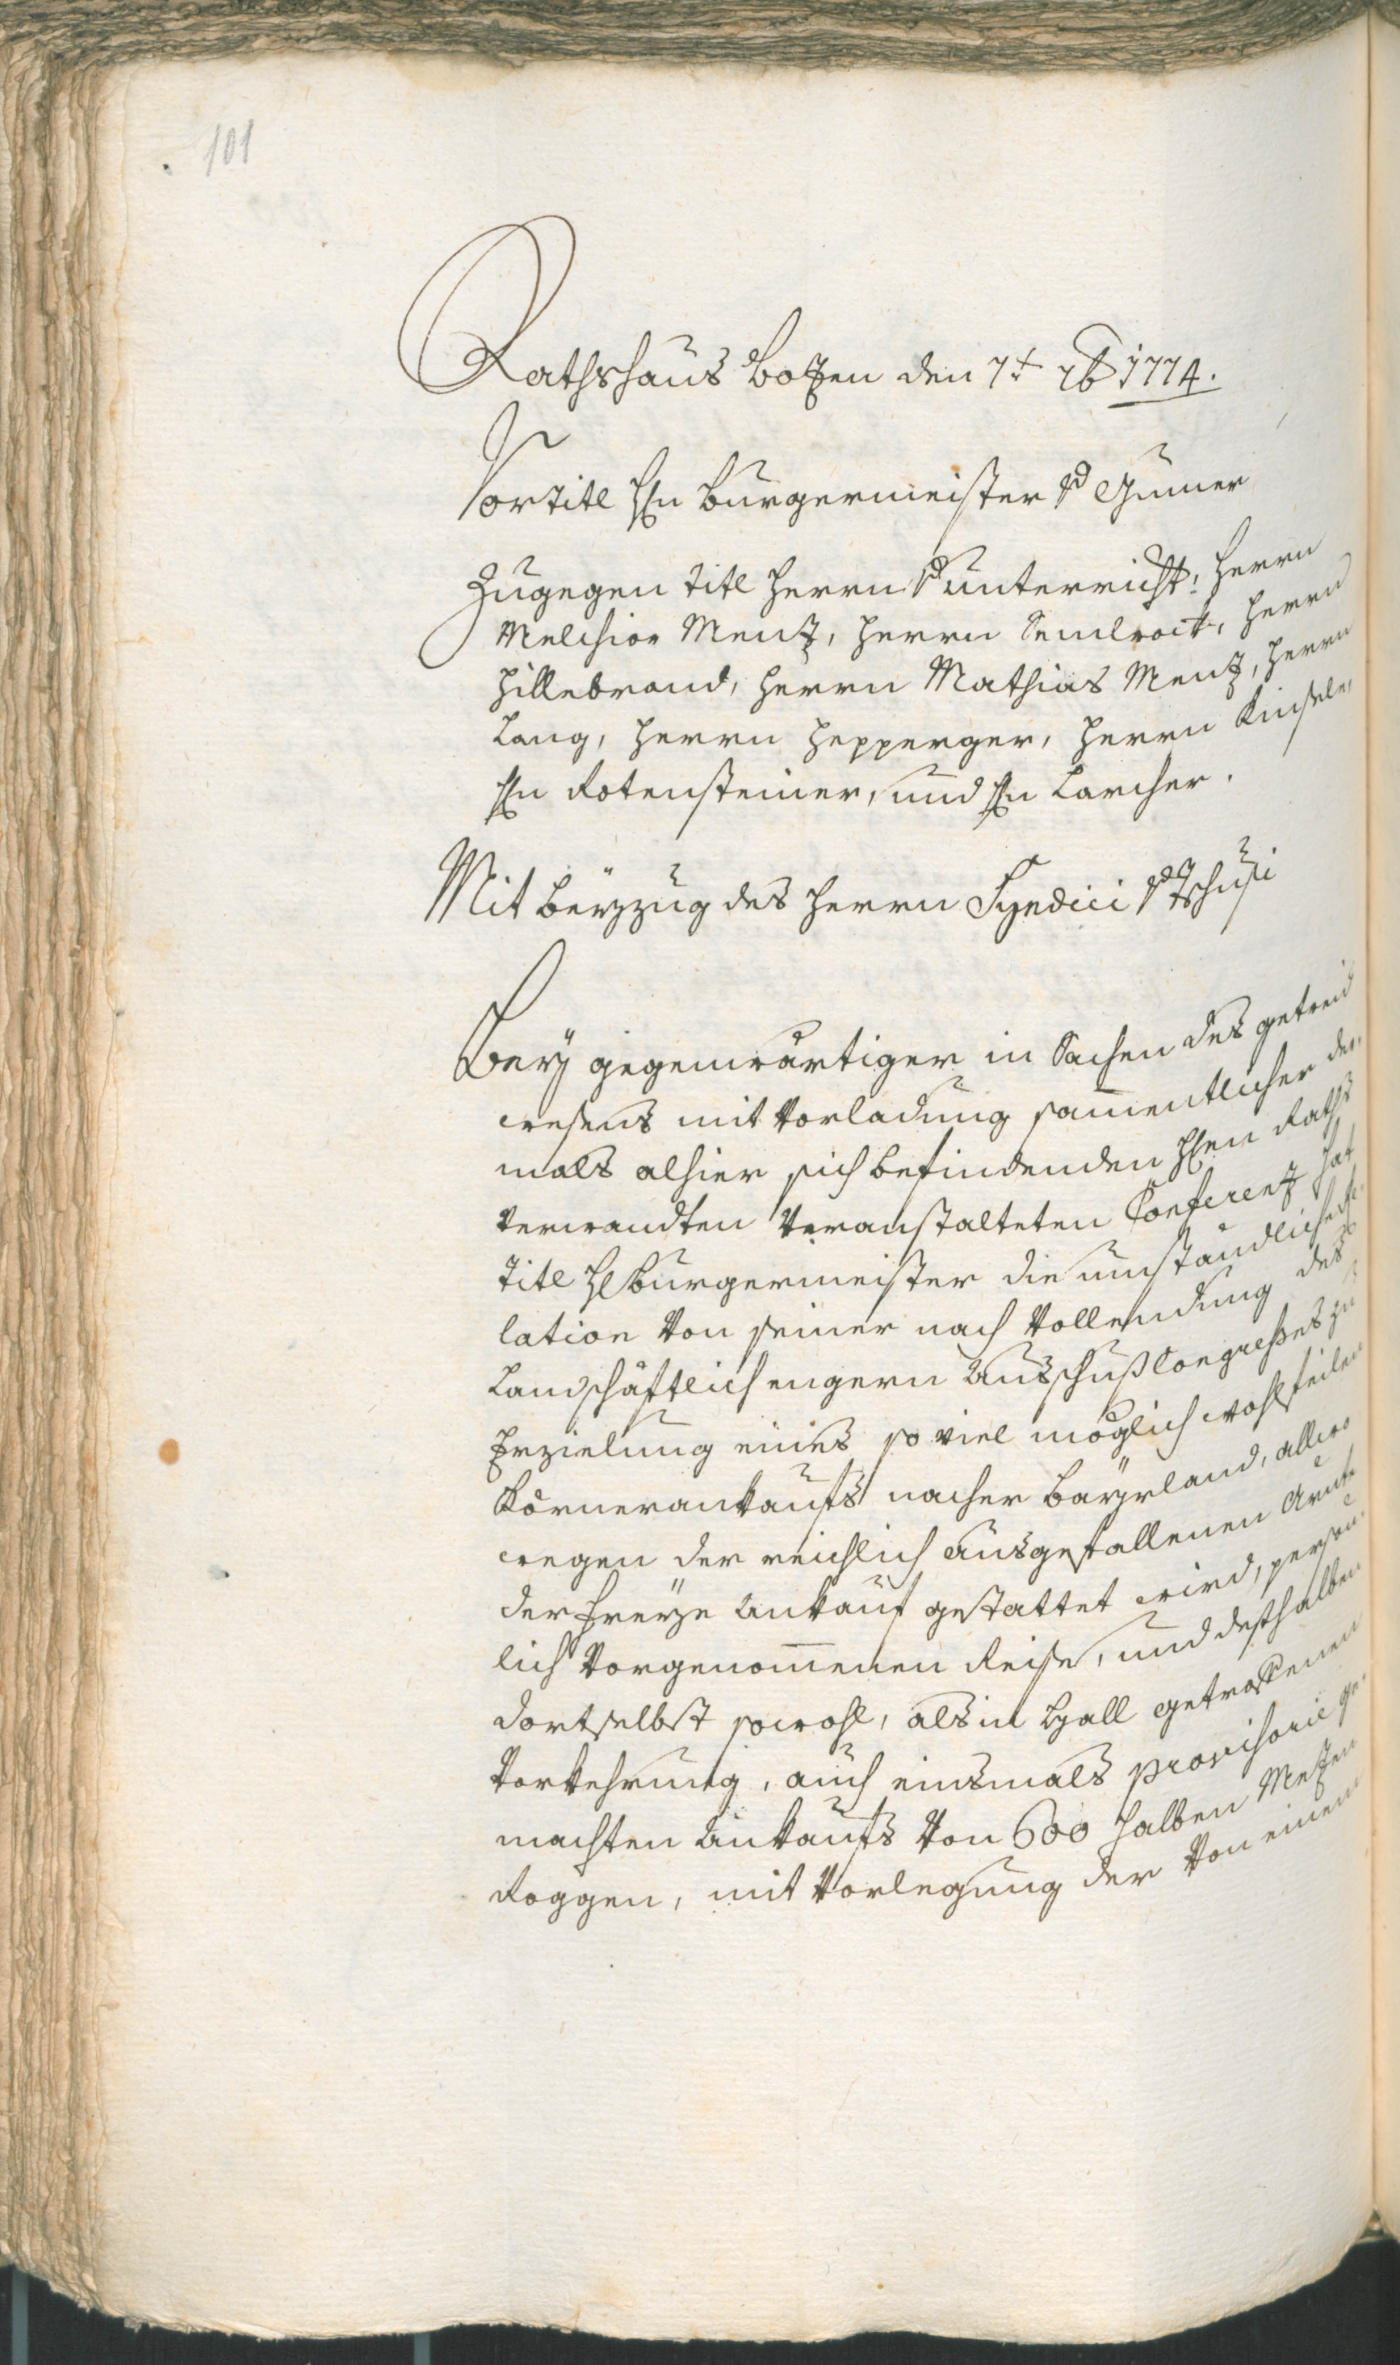 101
Rathshaus Botzen den 7t 7b 1774.
Vor Titl Hn Burgermeister v Gumer
Zugegen Titl Herrn v Unterricht: Herrn
Melchior Menz, Herrn Sendrock, Herrn
Hillebrand, Herrn Mathias Menz, Herrn
Lang, Herrn Hepperger, Herrn Kinsele,
Hn Rotensteiner, und Hn Larcher.
Mit Beyzug des Herrn Syndici v Tschusi
Bey gegenwärtiger in Sachen des getreid
wesens mit Vorladung sammentlicher der-
mals alhier sich befindenden Hhen Raths
verwandten veranstalteten Conferenz hat
Titl H Burgermeister die umständliche Re-
lation von seiner nach Vollendung des
Landschäftlich engern Ausschuß Congreßes zu
Erzielung eines so viel möglich wohlfeilen
Körnerankaufs nacher Bayrland, allwo
wegen der reichlich ausgefallenen Arnte
der freye Ankauf gestattet wird, persön-
lich vorgenommenen Reise, und desthalben
dortselbst sowohl, als in Hall getroffenen
Vorkehrung, auch einsmals provisorie ge-
machten Ankaufs von 600 halben Metzen
Roggen, mit Vorlegung der von einem